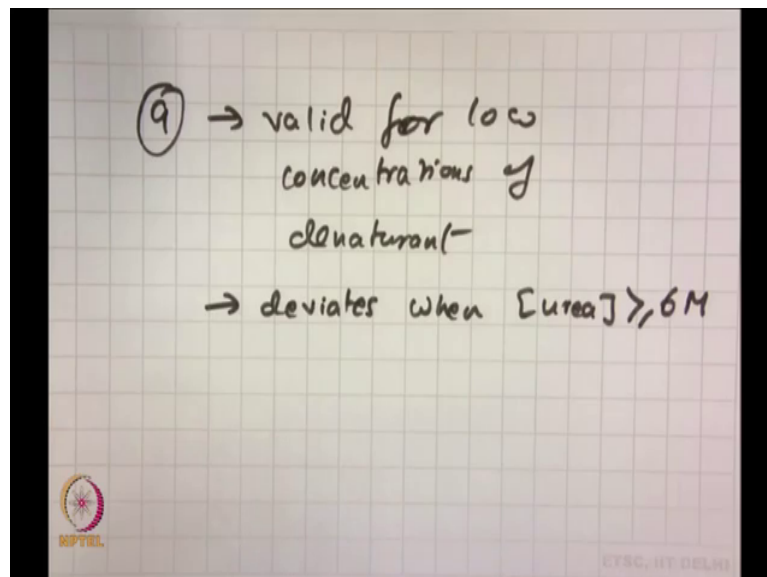 9 → valid for low
concentrations of
denaturant
→ deviates when [urea] ≥, 6M
NPTEL
ETSC, IIT DELHI